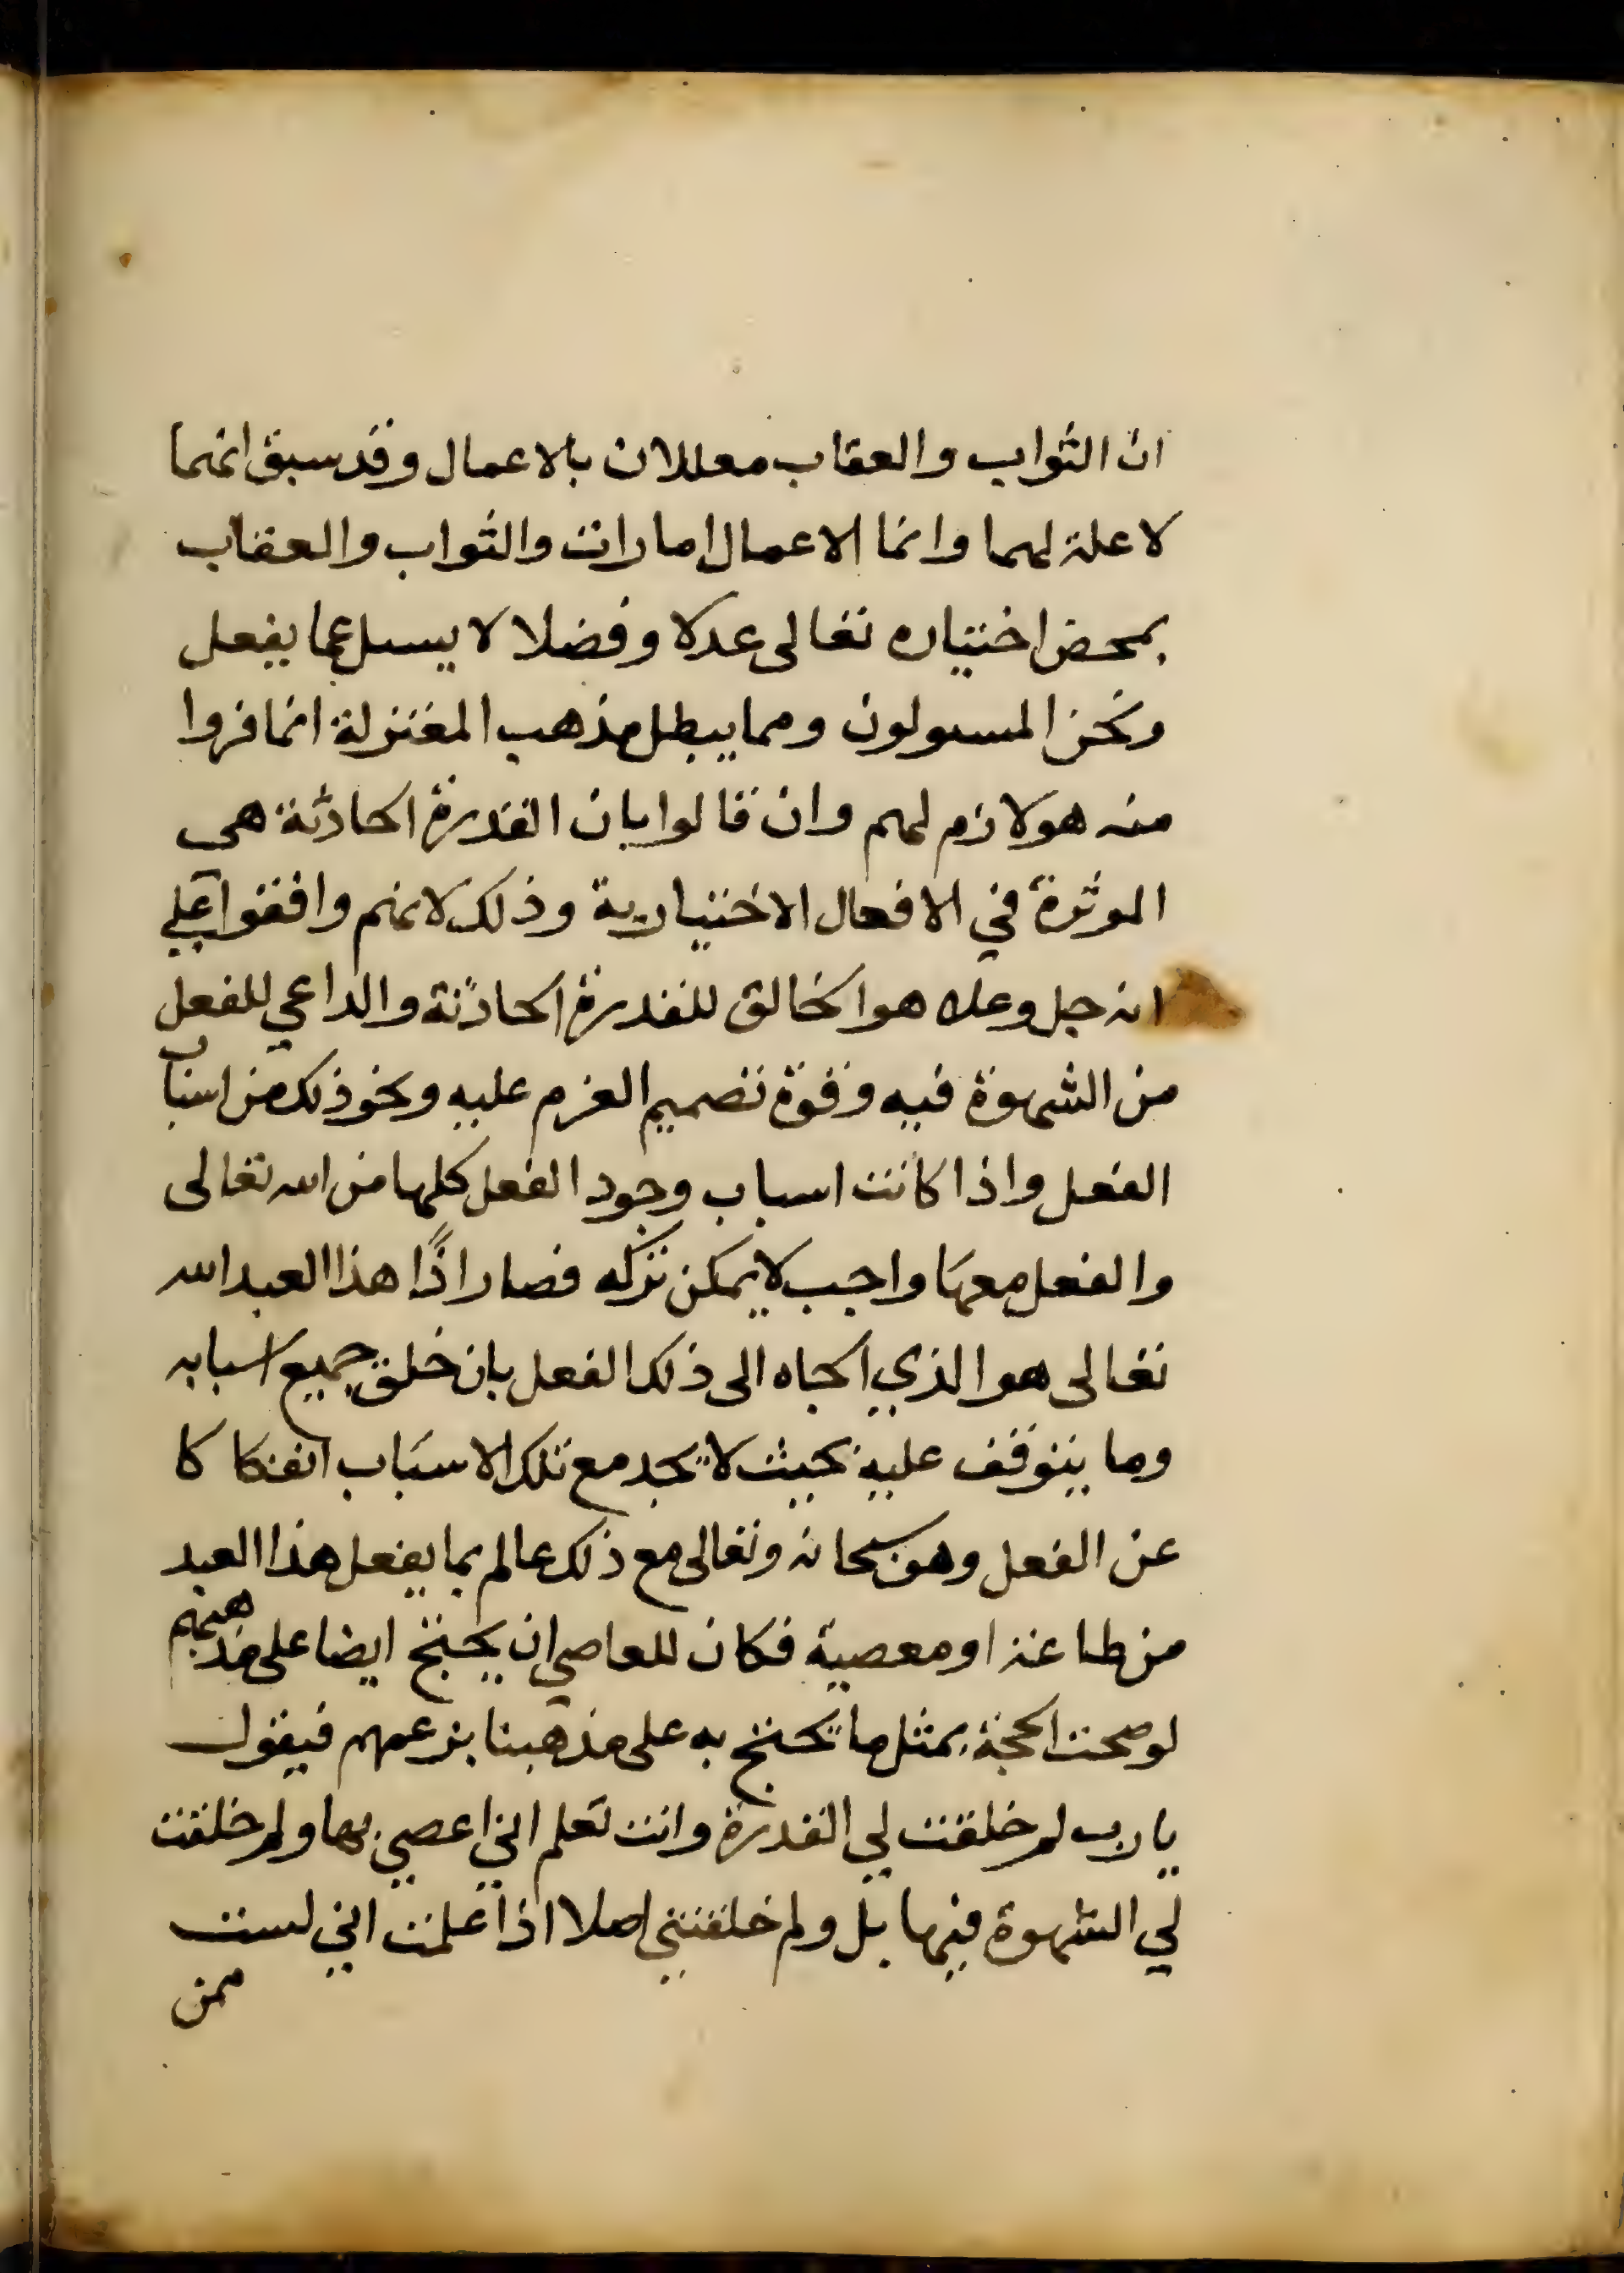 ان الثواب والعقاب معللان بالاعمال وقد سبق انهما
لا علة لهما وانما الاعمال امارات والثواب والعقاب
بمحض اختياره تعالى عدلا وفضلا لا يسل عما يفعل
ونحن المسولون ومما يبطل مذهب المعتزلة انما فروا
منه هو لازم لهم وان قالوا بان القدرة الحادثة هي
الموثرة في الافعال الاختيارية وذلك لانهم وافقوا على
انه جل وعلا هو الخالق للقدرة الحادثة والداعي للفعل
من الشهوة فيه وقوة تصميم العزم عليه ونحو ذلك من اسباب
الفعل واذا كانت اسباب وجود الفعل كلها من الله تعالى
والفعل معها واجب لا يمكن تركه فصار اذًا هذا العبد الله
تعالى هو الذي الجاه الى ذلك الفعل بان خلق جميع اسبابه
وما يتوقف عليه بحيث لا يجد مع تلك الاسباب انفكاكا
عن الفعل وهو سبحانه وتعالى مع ذلك عالم بما يفعل هذا العبد
من طاعته او معصية فكان للعاصي ان يحتج ايضا على مذهبهم
لو صحت الحجة بمثل ما تحتج به على مذهبنا بزعمهم فيقول
يا رب لم خلقت لي القدرة وانت تعلم اني اعصي بها ولم خلقت
لي الشهوة فيها بل ولم خلقتني اصلا اذا علمت اني لست
ممن